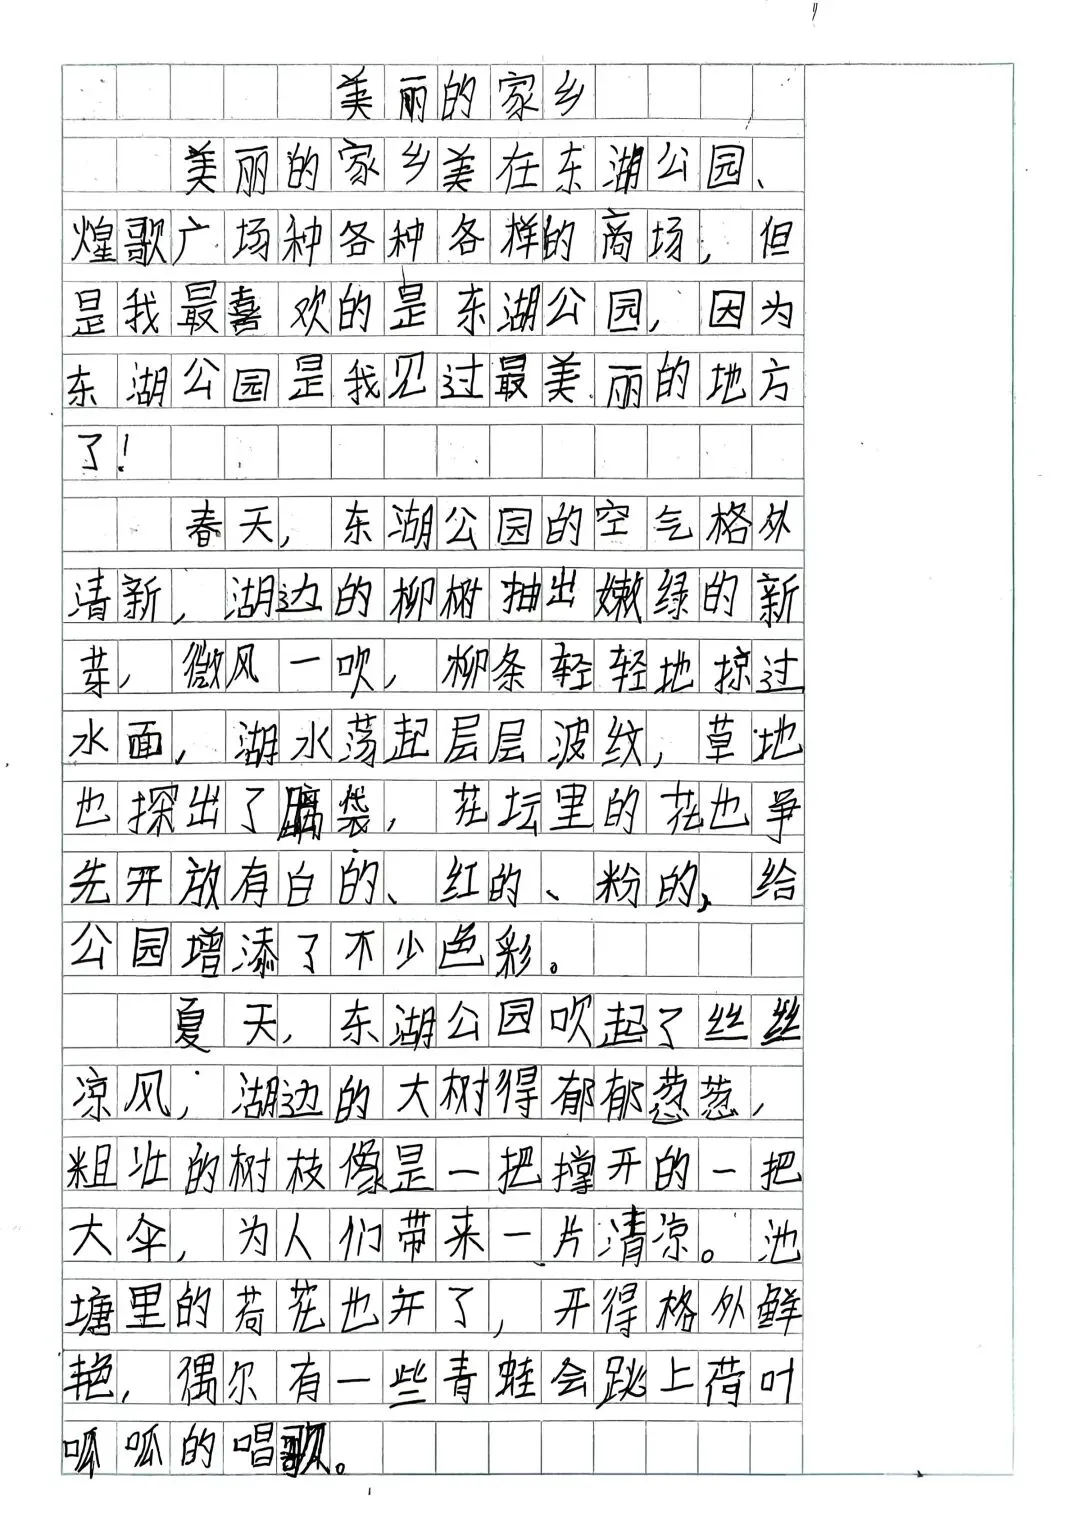 美丽的家乡
美丽的家乡美在东湖公园、
煌歌广场种各种各样的商场，但
是我最喜欢的是东湖公园，因为
东湖公园是我见过最美丽的地方
了！
春天，东湖公园的空气格外
清新，湖边的柳树抽出嫩绿的新
芽，微风一吹，柳条轻轻地掠过
水面，湖水荡起层层波纹，草地
也探出了脑袋，花坛里的花也争
先开放有白的、红的、粉的，给
公园增添了不少色彩。
夏天，东湖公园吹起了丝丝
凉风，湖边的大树得郁郁葱葱，
粗壮的树枝像是一把撑开的一把
大伞，为人们带来一片清凉。池
塘里的荷花也开了，开得格外鲜
艳，偶尔有一些青蛙会跳上荷叶
呱呱的唱歌。